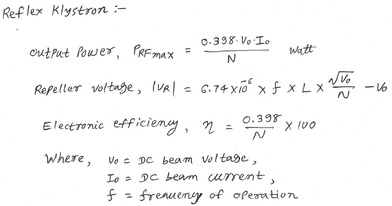 Reflex Klystron :-
Output Power, PRFmax = 0.398·Vo·Io / N Watt
Repeller voltage, |VR| = 6.74×10^-6 × f × L × √Vo / N - Vo
Electronic efficiency, η = 0.398 / N × 100
Where, Vo = DC beam voltage,
Io = DC beam current,
f = frequency of operation